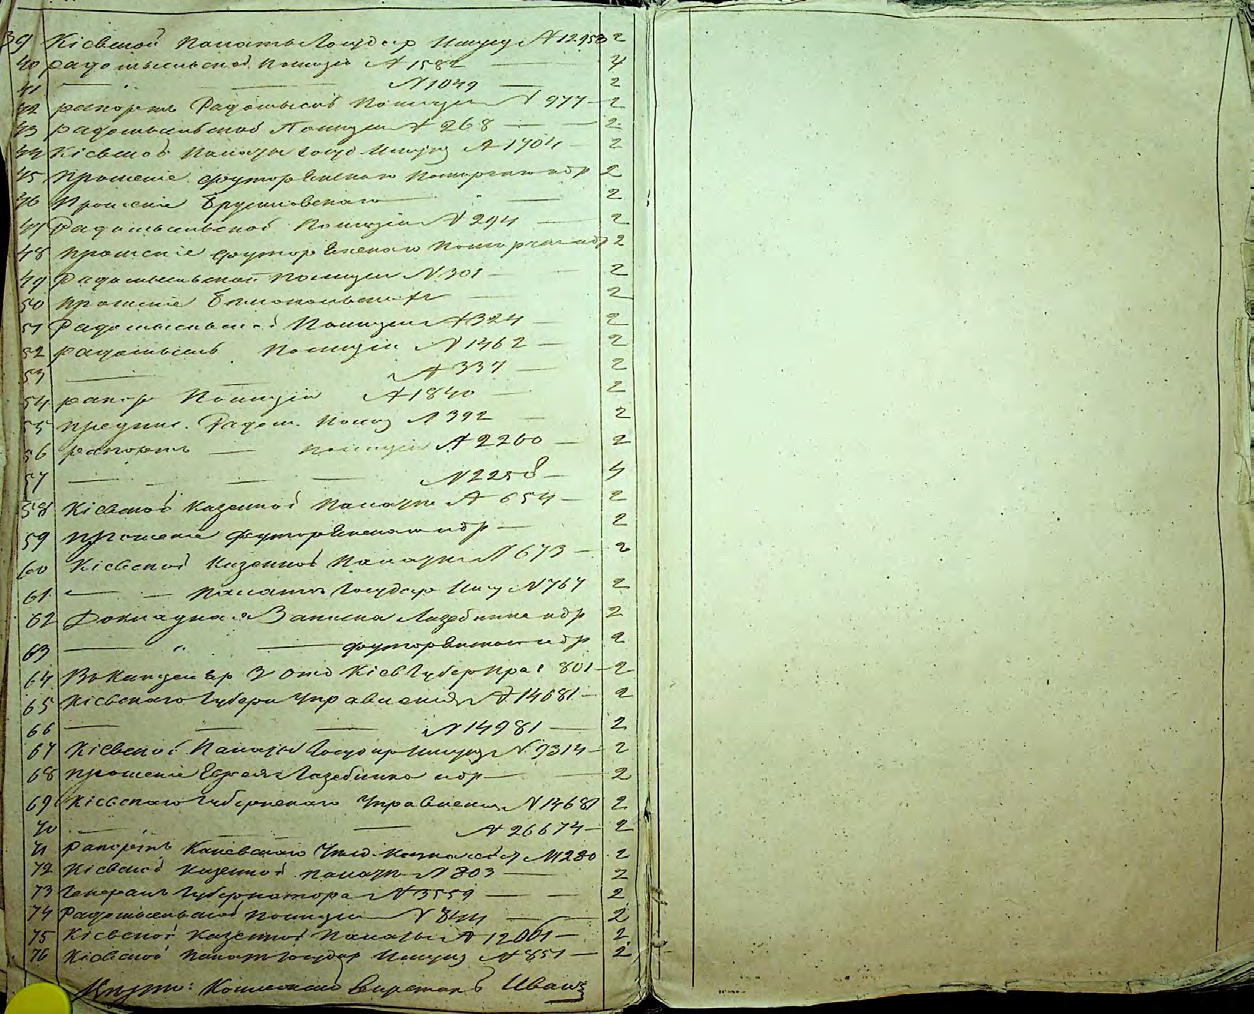 39 Кіевской Палаты Государ Имущ №12,958 2
40 Радомысльской Полиціи №1582 — 4
41 — — №1049 — 2
42 рапортъ Радомысльс Полиціи №977 — 2
43 Радомысльской Полиціи №268 — — 2
44 Кіевской Палаты Госуд Имущ №1704 — 2
45 Прошеніе 2
46 Прошеніе Брусиловскаго — — 2
47 Радомысльской Полиціи №294 — 2
48 прошеніе 2
49 Радомысльской Полиціи №301 — — 2
50 прошеніе — 2
51 Радомысльской Полиціи №324 — 2
52 радомысль Полиціи №1462 — 2
53 — — №337 — 2
54 рапор Полиціи №1840 — 2
55 предпис. Радом. Полиц №392 — 2
56 рапортъ — полиціи №2260 — 2
57 — — — №2258 — 4
58 Кіевской Казенной Палаты №654 — 2
59 прошеніе идр — 2
60 Кіевской Казенной Палаты №673 — 2
61 — — Палаты Государ Имущ №767 2
62 Докладная Записка Лазебника идр 2
63 — " — идр 2
64 3 отд Кіев Губер Прав 801 — 2
65 Кіевскаго Губерн Управленія №14681 — 2
66 — — — №14981 — 2
67 Кіевской Палаты Государ Имущ №9314 — 2
68 прошеніе Лазебника идр — — 2
69 Кіевскаго Губернскаго Управленія №14681 2
70 — — №26674 — 2
71 рапортъ Каневскаго №1280 2
72 Кіевской Казенной палаты №803 — 2
73 Генералъ Губернатора №3559 — — 2
74 Радомысльской Полиціи №844 — — 2
75 Кіевской Казенной Палаты №12001 — 2
76 Кіевской Палат Государ Имущ №851 — 2
Секретарь Иванъ